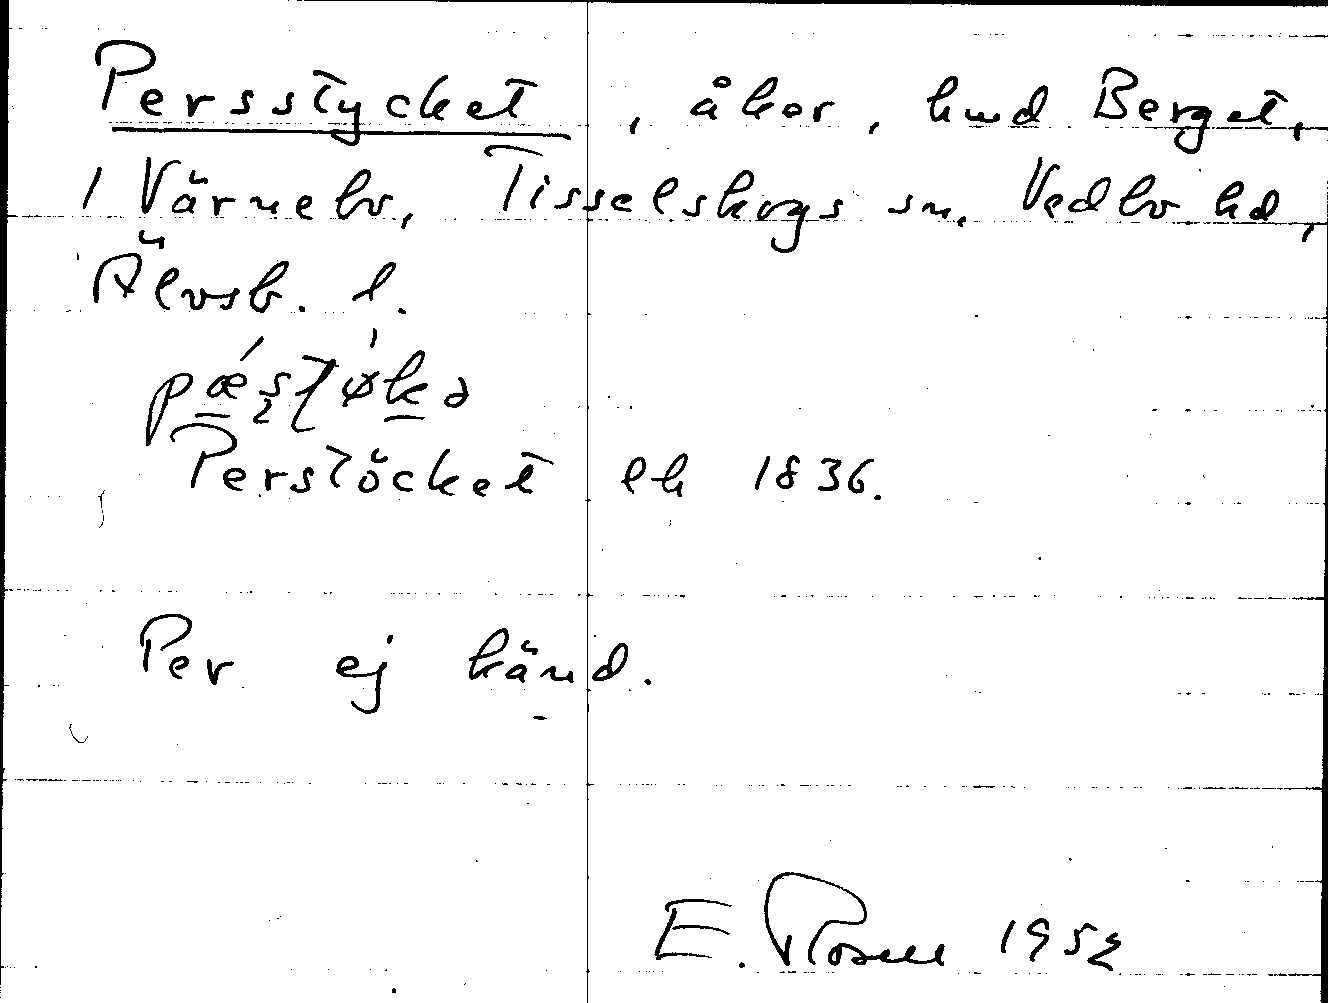 Persstycket, åker, hmd Berget,
1 Värnebo, Tisselskogs sn, Vedbo hd,
Älvsb. l.
Perstöcket ek 1836.
Per ej känd.
E. Rosell 1952